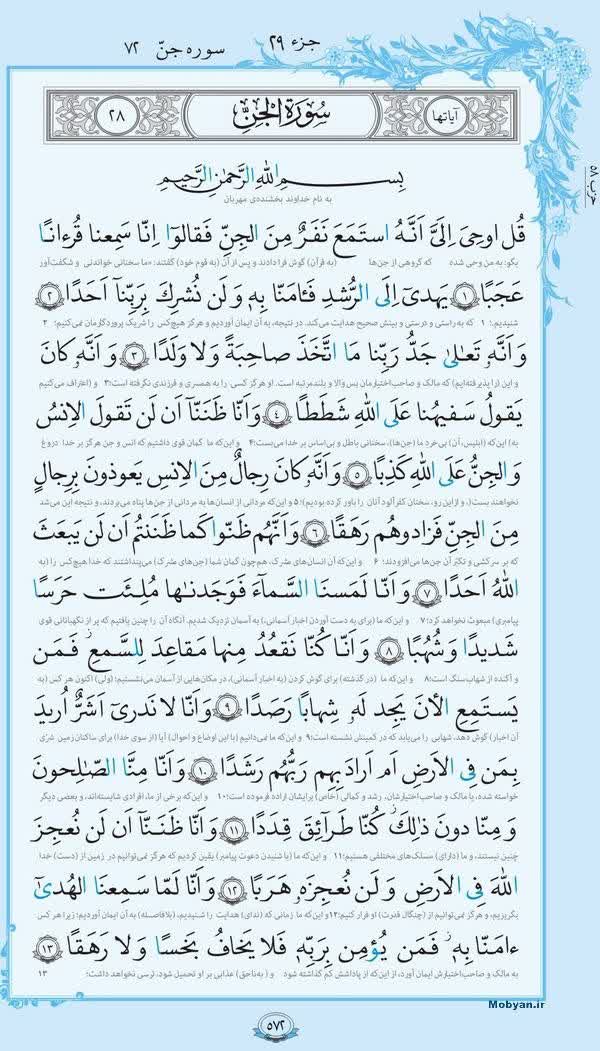 جزء ۲۹
سوره جنّ ۷۲
حزب ۵۸
آیاتها
سُورَةُ الْجِنِّ
۲۸
بِسْمِ اللّهِ الرَّحْمٰنِ الرَّحیمِ
به نام خداوند بخشنده‌ی مهربان
قُل اوحِیَ اِلَیَّ اَنَّهُ استَمَعَ نَفَرٌ مِنَ الجِنِّ فَقالوا اِنّا سَمِعنا قُرءانًا
بگو: به من وحی شده که گروهی از جن‌ها (به قرآن) گوش فرا دادند و پس از آن (به قوم خود) گفتند: «ما سخنانی خواندنی و شگفت‌آور
عَجَبًا ۱ یَهدی اِلَی الرُّشدِ فَـٔامَنّا بِه وَ لَن نُشرِکَ بِرَبِّنا اَحَدًا ۲
شنیدیم.؛ ۱ که به راستی و درستی و بینش صحیح هدایت می‌کند. در نتیجه، به آن ایمان آوردیم و هرگز هیچ‌کس را شریک پروردگارمان نمی‌کنیم؛ ۲
وَ اَنَّه تَعالیٰ جَدُّ رَبِّنا مَا اتَّخَذَ صاحِبَةً وَ لا وَلَدًا ۳ وَ اَنَّه کانَ
و این (را پذیرفته‌ایم) که مالک و صاحب‌اختیارمان بس والا و بلندمرتبه است. او هرگز کسی را به همسری و فرزندی نگرفته است؛۳ و (اعتراف می‌کنیم
یَقولُ سَفیهُنا عَلَی اللهِ شَطَطًا ۴ وَ اَنّا ظَنَنّا اَن لَن تَقولَ الاِنسُ
به) این‌که (ابلیس، آن) بی‌خرد ما (جن‌ها)، سخنانی باطل و بی‌اساس بر خدا می‌بست؛۴ و این‌که ما گمان قوی داشتیم که انس و جن هرگز بر خدا دروغ
وَ الجِنُّ عَلَی اللهِ کَذِبًا ۵ وَ اَنَّه کانَ رِجالٌ مِنَ الاِنسِ یَعوذونَ بِرِجالٍ
نخواهند بست(، و از این رو، سخنان کفرآلود آنان را باور کرده بودیم)؛۵ و این‌که مردانی از انسان‌ها به مردانی از جن‌ها پناه می‌بردند، و نتیجه این می‌شد
مِنَ الجِنِّ فَزادوهُم رَهَقًا ۶ وَ اَنَّهُم ظَنّوا کَما ظَنَنتُم اَن لَن یَبعَثَ
که بر سرکشی و تکبّر آن جن‌ها می‌افزودند؛ ۶ و این‌که آن انسان‌های مشرک، هم‌چون گمان شما (جن‌های مشرک) می‌پنداشتند که خدا هیچ‌کس را (به
اللهُ اَحَدًا ۷ وَ اَنّا لَمَسنَا السَّماءَ فَوَجَدناها مُلِئَت حَرَسًا
پیامبری) مبعوث نخواهد کرد؛ ۷ و این‌که ما (برای به دست آوردن اخبار آسمانی،) به آسمان نزدیک شدیم. آن‌گاه آن را چنین یافتیم که پر از نگهبانانی قوی
شَدیدًا وَ شُهُبًا ۸ وَ اَنّا کُنّا نَقعُدُ مِنها مَقاعِدَ لِلسَّمعِ فَمَن
و آکنده از شهاب‌سنگ است؛۸ و این‌که ما (در گذشته) برای گوش کردن (به اخبار آسمانی)، در مکان‌هایی از آسمان می‌نشستیم؛ (ولی) اکنون هر کس (به
یَستَمِعِ الـٔانَ یَجِد لَه شِهابًا رَصَدًا ۹ وَ اَنّا لا نَدری اَشَرٌّ اُریدَ
آن اخبار) گوش دهد، شهابی را می‌یابد که در کمینش نشسته است؛۹ و این‌که ما نمی‌دانیم (با این اوضاع و احوال) آیا (از سوی خدا) برای ساکنان زمین شرّی
بِمَن فِی الاَرضِ اَم اَرادَ بِهِم رَبُّهُم رَشَدًا ۱۰ وَ اَنّا مِنَّا الصّالِحونَ
خواسته شده، یا مالک و صاحب‌اختیارشان، رشد و کمالی (خاص) برایشان اراده فرموده است؛۱۰ و این‌که برخی از ما، افرادی شایسته‌اند، و بعضی دیگر
وَ مِنّا دونَ ذٰلِکَ کُنّا طَرائِقَ قِدَدًا ۱۱ وَ اَنّا ظَنَنّا اَن لَن نُعجِزَ
چنین نیستند، و ما (دارای) مسلک‌های مختلفی هستیم؛۱۱ و این‌که ما (با شنیدن دعوت پیامبر) یقین کردیم که هرگز نمی‌توانیم در زمین از (دست) خدا
اللهَ فِی الاَرضِ وَ لَن نُعجِزَه هَرَبًا ۱۲ وَ اَنّا لَمّا سَمِعنَا الهُدیٰ
بگریزیم، و هرگز نمی‌توانیم از (چنگال قدرت) او فرار کنیم؛۱۲ و این‌که ما زمانی که (ندای) هدایت را شنیدیم، (بلافاصله) به آن ایمان آوردیم؛ زیرا هر کس
ءامَنّا بِه فَمَن یُؤمِن بِرَبِّه فَلا یَخافُ بَخسًا وَ لا رَهَقًا ۱۳
به مالک و صاحب‌اختیارش ایمان آورد، از این‌که از پاداشش کم گذاشته شود و (به‌ناحق) عذابی بر او تحمیل شود، ترسی نخواهد داشت؛ ۱۳
۵۷۲
Mobyan.ir